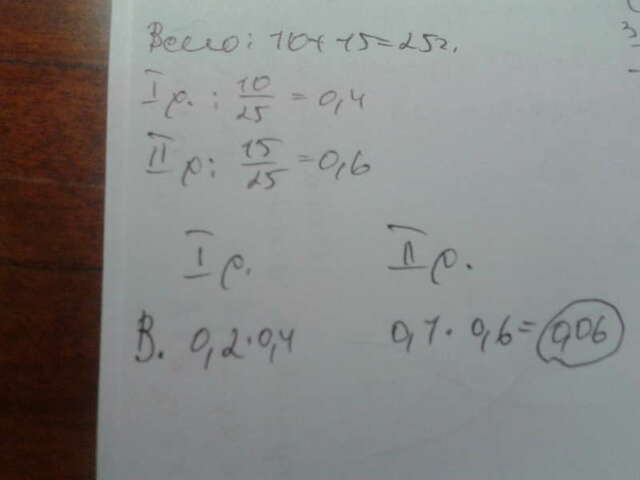 Всего: 10+15=25г.
I р. : 10/25 = 0,4
II р: 15/25 = 0,6
I р. II р.
В. 0,2·0,4 0,1·0,6= 0,06
3